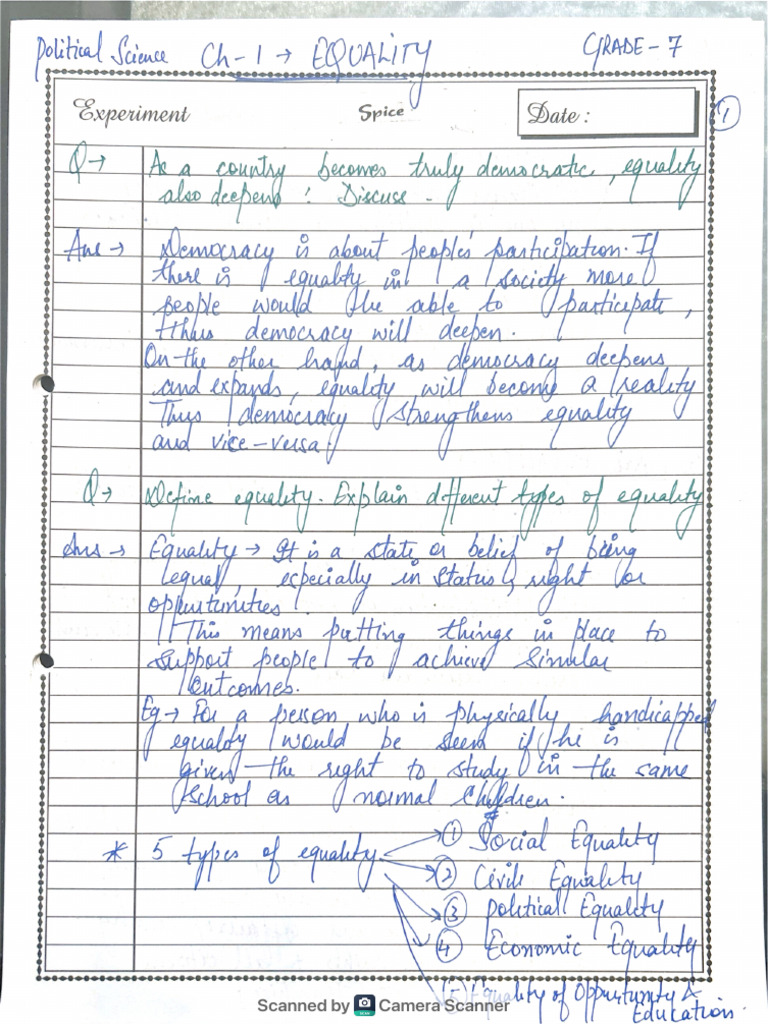 Political Science Ch-1 → EQUALITY GRADE-7
Experiment Spice Date :
1
Q→ As a country becomes truly democratic, equality
also deepens : Discuss.
Ans → Democracy is about people's participation. If
there is equality in a society more
people would be able to participate,
thus democracy will deepen.
On the other hand, as democracy deepens
and expands, equality will become a reality
Thus democracy strengthens equality
and vice-versa.
Q→ Define equality. Explain different types of equality
Ans → Equality → It is a state or belief of being
equal, especially in status, right or
opportunities.
This means putting things in place to
support people to achieve similar
outcomes.
Eg → For a person who is physically handicapped
equality would be seem if he is
given the right to study in the same
school as normal children.
* 5 types of equality
① Social Equality
② Civil Equality
③ Political Equality
④ Economic Equality
⑤ Equality of Opportunity &
Education.
Scanned by Camera Scanner